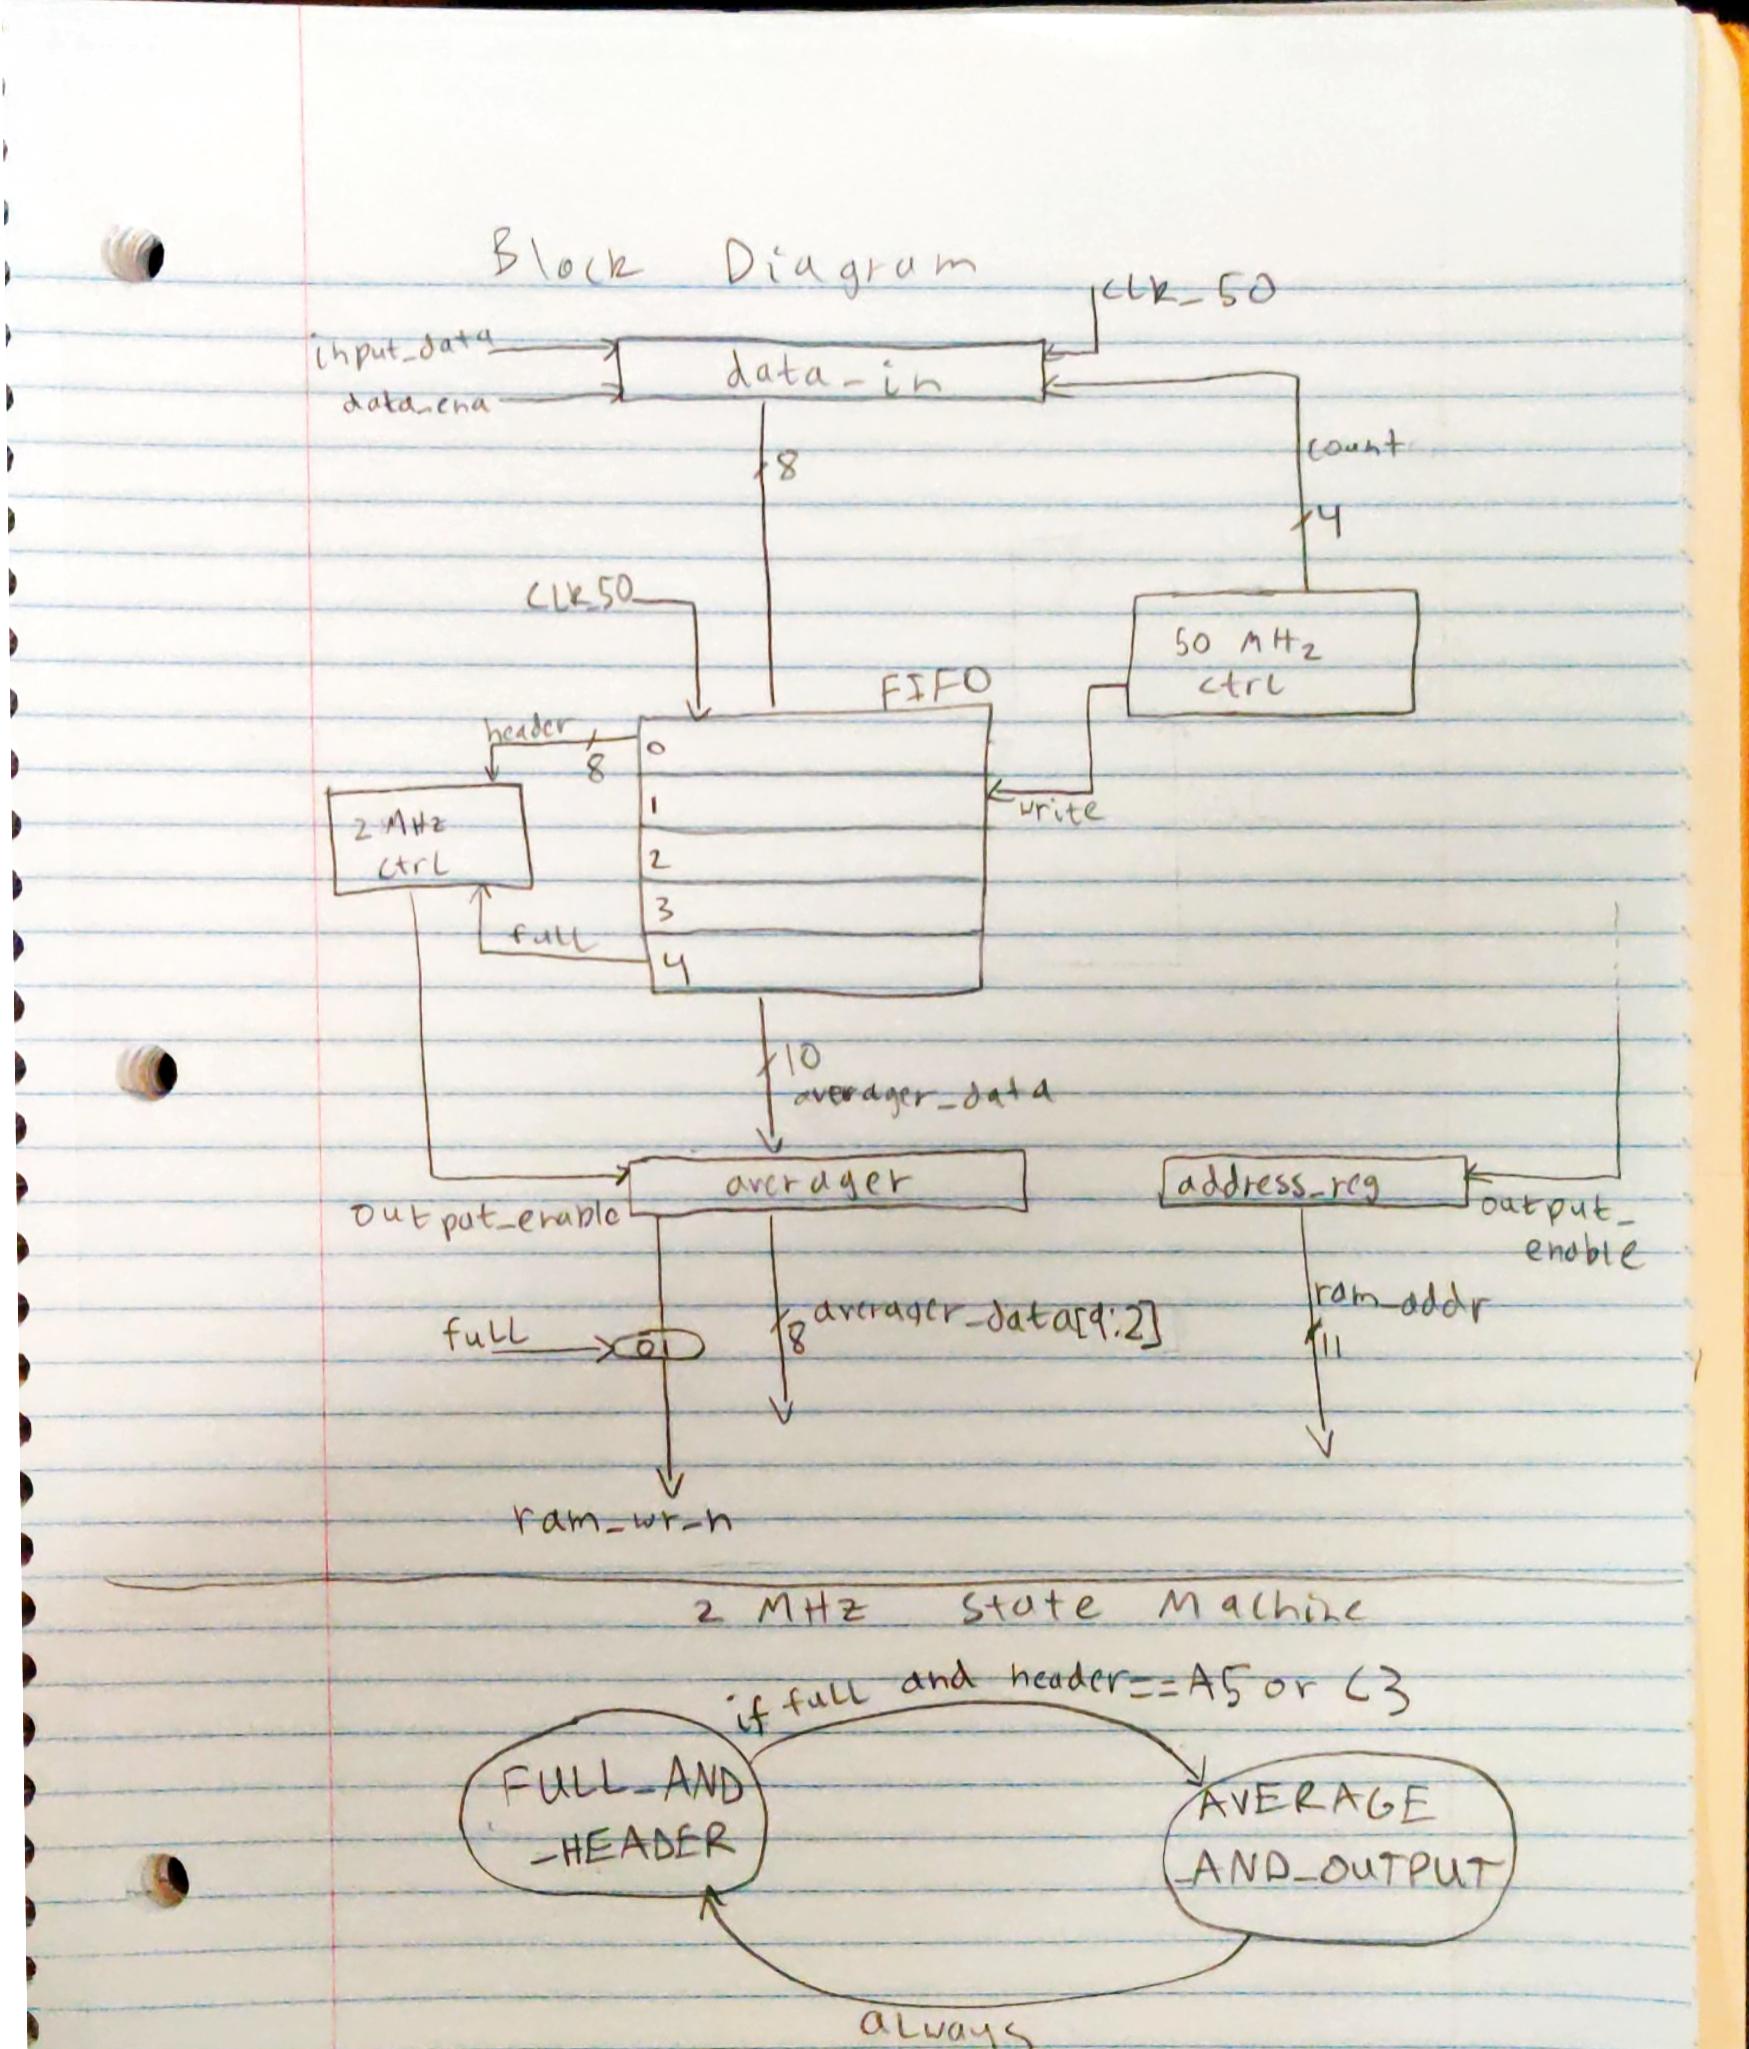 Block Diagram
CLK_50
input_data
data_in
data_ena
count
8
4
CLK_50
50 MHz
ctrl
FIFO
header
8
0
write
1
2 MHz
ctrl
2
3
full
4
10
averager_data
averager
address_reg
output_enable
output_
enable
ram_addr
averager_data[9:2]
full
8
11
ram_wr_n
2 MHz State Machine
if full and header==A5 or C3
FULL_AND
_HEADER
AVERAGE
_AND_OUTPUT
always